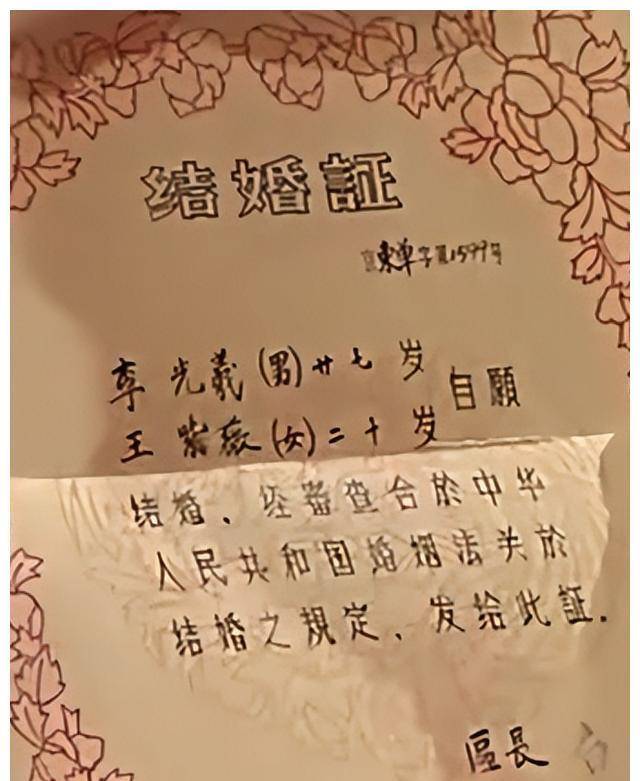 结婚証
東单字第1599号
李光羲(男)廿七岁
王紫薇(女)二十岁
自願
结婚、经審查合於中华
人民共和国婚姻法关於
结婚之规定、发给此証.
區長